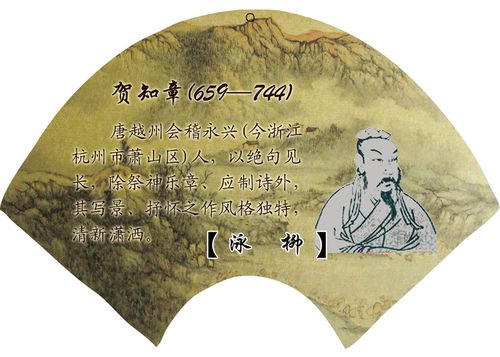 贺知章(659—744)
唐越州会稽永兴(今浙江
杭州市萧山区)人，以绝句见
长，除祭神乐章、应制诗外，
其写景、抒怀之作风格独特，
清新潇洒。
【咏柳】